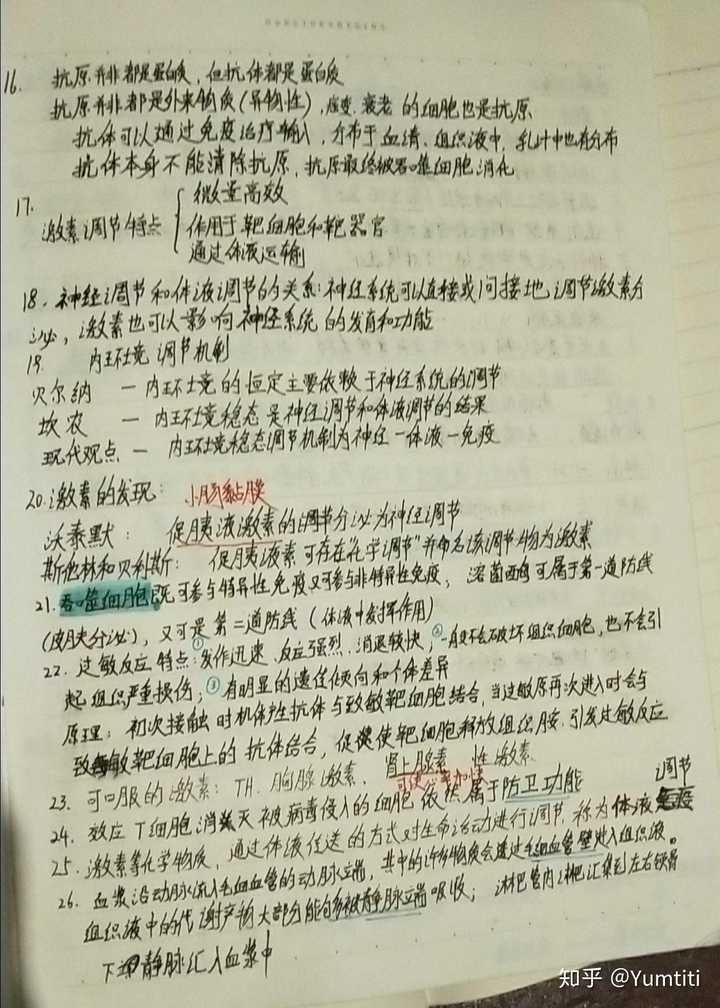 16. 抗原并非都是蛋白质，但抗体都是蛋白质
抗原并非都是外来物质(异物性)，癌变、衰老的细胞也是抗原
抗体可以通过免疫治疗输入，分布于血清、组织液中，乳汁中也有分布
抗体本身不能清除抗原，抗原最终被吞噬细胞消化
17. 激素调节特点
微量高效
作用于靶细胞和靶器官
通过体液运输
18. 神经调节和体液调节的关系：神经系统可以直接或间接地调节激素分
泌，激素也可以影响神经系统的发育和功能
19. 内环境调节机制
贝尔纳 — 内环境的恒定主要依赖于神经系统的调节
坎农 — 内环境稳态是神经调节和体液调节的结果
现代观点 — 内环境稳态调节机制为神经—体液—免疫
20. 激素的发现： 小肠黏膜
沃泰默： 促胰液激素的调节分泌为神经调节
斯他林和贝利斯： 促胰液素可存在"化学调节"并命名该调节物为激素
21. 吞噬细胞既可参与特异性免疫又可参与非特异性免疫；溶菌酶可属于第一道防线
(皮肤分泌)，又可是第二道防线(体液中发挥作用)
22. 过敏反应特点：①发作迅速、反应强烈、消退较快；②一般不会破坏组织细胞，也不会引
起组织严重损伤；③有明显的遗传倾向和个体差异
原理：初次接触时机体产生抗体与致敏靶细胞结合，当过敏原再次进入时会与
致敏靶细胞上的抗体结合，促使靶细胞释放组织胺，引发过敏反应
23. 可口服的激素：TH、胸腺激素、肾上腺素、性激素
可使心率加快
24. 效应T细胞消灭被病毒侵入的细胞依然属于防卫功能
25. 激素等化学物质，通过体液传送的方式对生命活动进行调节，称为体液调节
26. 血浆沿动脉流入毛细血管的动脉端，其中的许多物质会透过毛细血管壁进入组织液。
组织液中的代谢产物大部分能够被静脉端吸收；淋巴管内淋巴汇集到左右锁骨
下静脉汇入血浆中
知乎 @Yumtiti